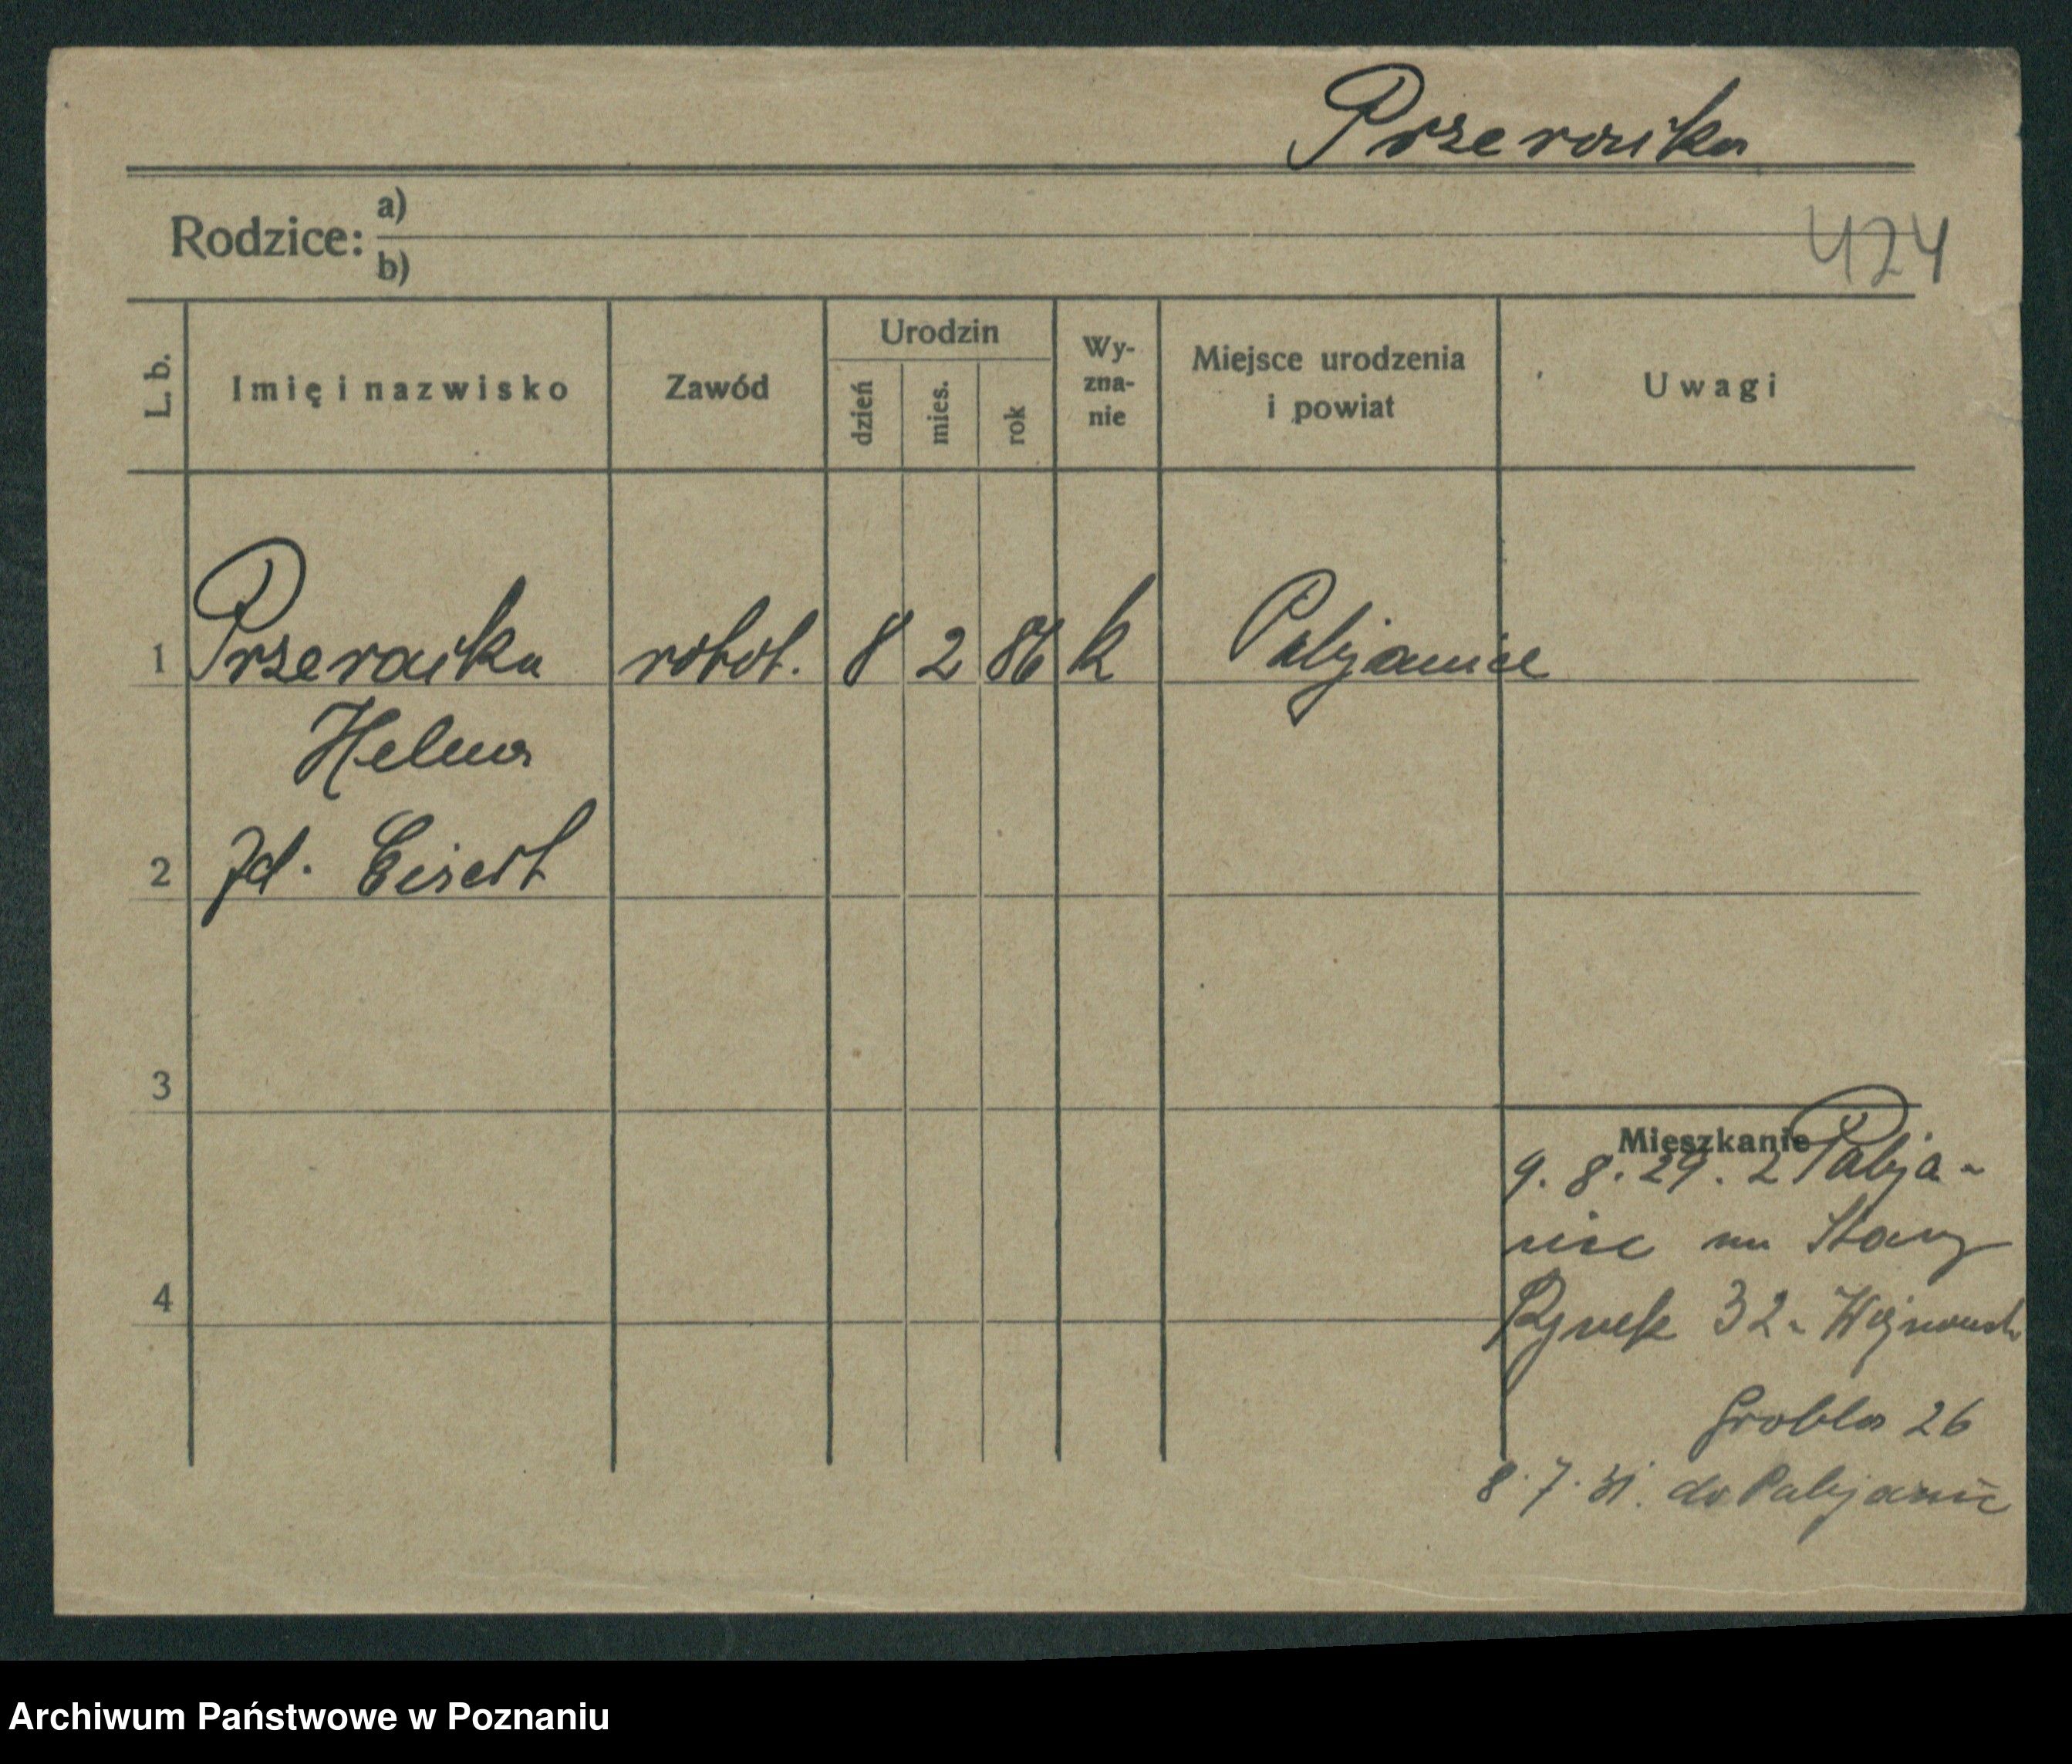 Przeraska
Rodzice: a)
b)
424
L. b.
Imię i nazwisko
Zawód
Urodzin
dzień
mies.
rok
Wy-
zna-
nie
Miejsce urodzenia
i powiat
Uwagi
1 Przeraska robot. 8 2 86 k Pabjanice
Helena
2 Eisert
3
4
Mieszkanie
9. 8. 29. z Pabja-
nic na Stary
Rynek 32
Grobla 26
8. 7. 31. do Pabjanic
Archiwum Państwowe w Poznaniu